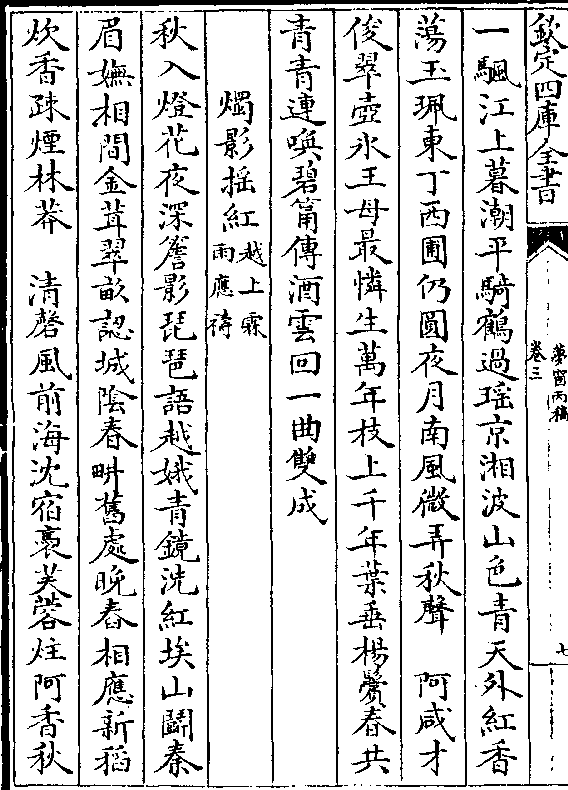 欽定四庫全書
夢窗丙稿
卷三
七
一颿江上暮潮平騎鶴過瑶京湘波山色青天外紅香
蕩玉珮東丁西圃仍圓夜月南風微弄秋聲　阿咸才
俊翠壺氷王母最憐生萬年枝上千年葉垂楊鬢春共
青青連喚碧筩傳酒雲回一曲雙成
燭影揺紅越上霖雨應禱
秋入燈花夜深簷影琵琶語越娥青鏡洗紅埃山鬬秦
眉嫵相間金茸翠畝認城陰春耕舊處晚舂相應新稻
炊香疎煙林莽　清磬風前海沈宿裛芙蓉炷阿香秋